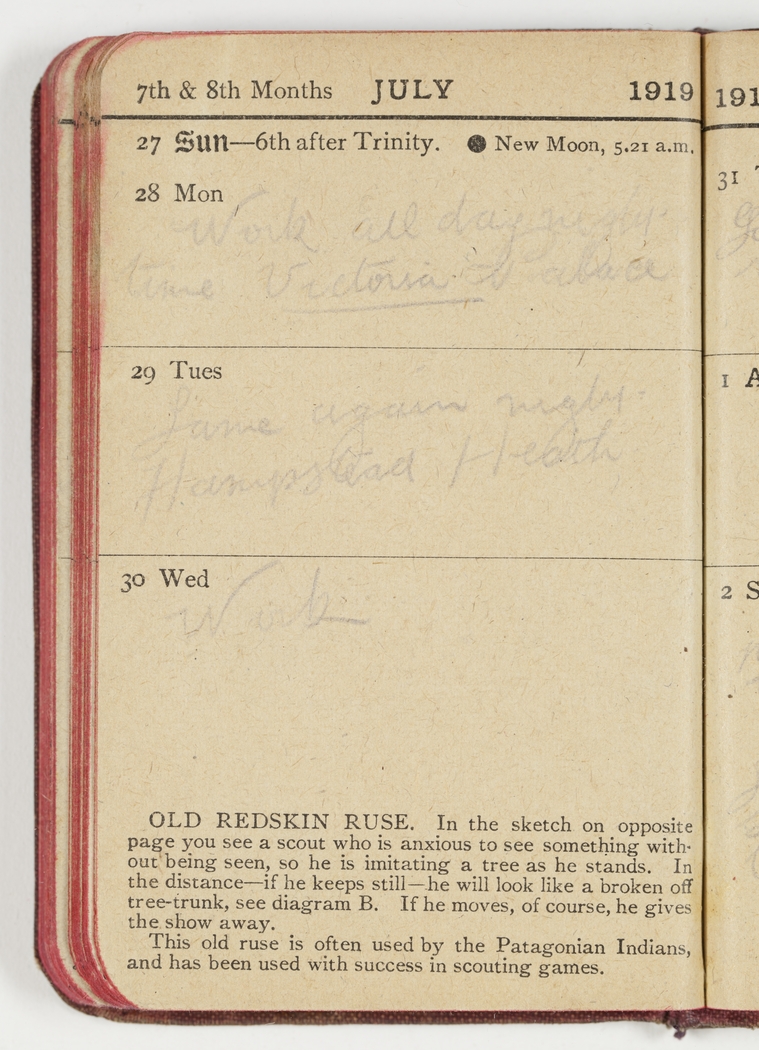 7th & 8th Months JULY 1919
27 Sun—6th after Trinity. ● New Moon, 5.21 a.m.
28 Mon
Work all day night
time Victoria Palace
29 Tues
Same again night
Hampstead Heath
30 Wed
Work
OLD REDSKIN RUSE. In the sketch on opposite
page you see a scout who is anxious to see something with-
out being seen, so he is imitating a tree as he stands. In
the distance—if he keeps still—he will look like a broken off
tree-trunk, see diagram B. If he moves, of course, he gives
the show away.
This old ruse is often used by the Patagonian Indians,
and has been used with success in scouting games.
191
31
1 A
2 S